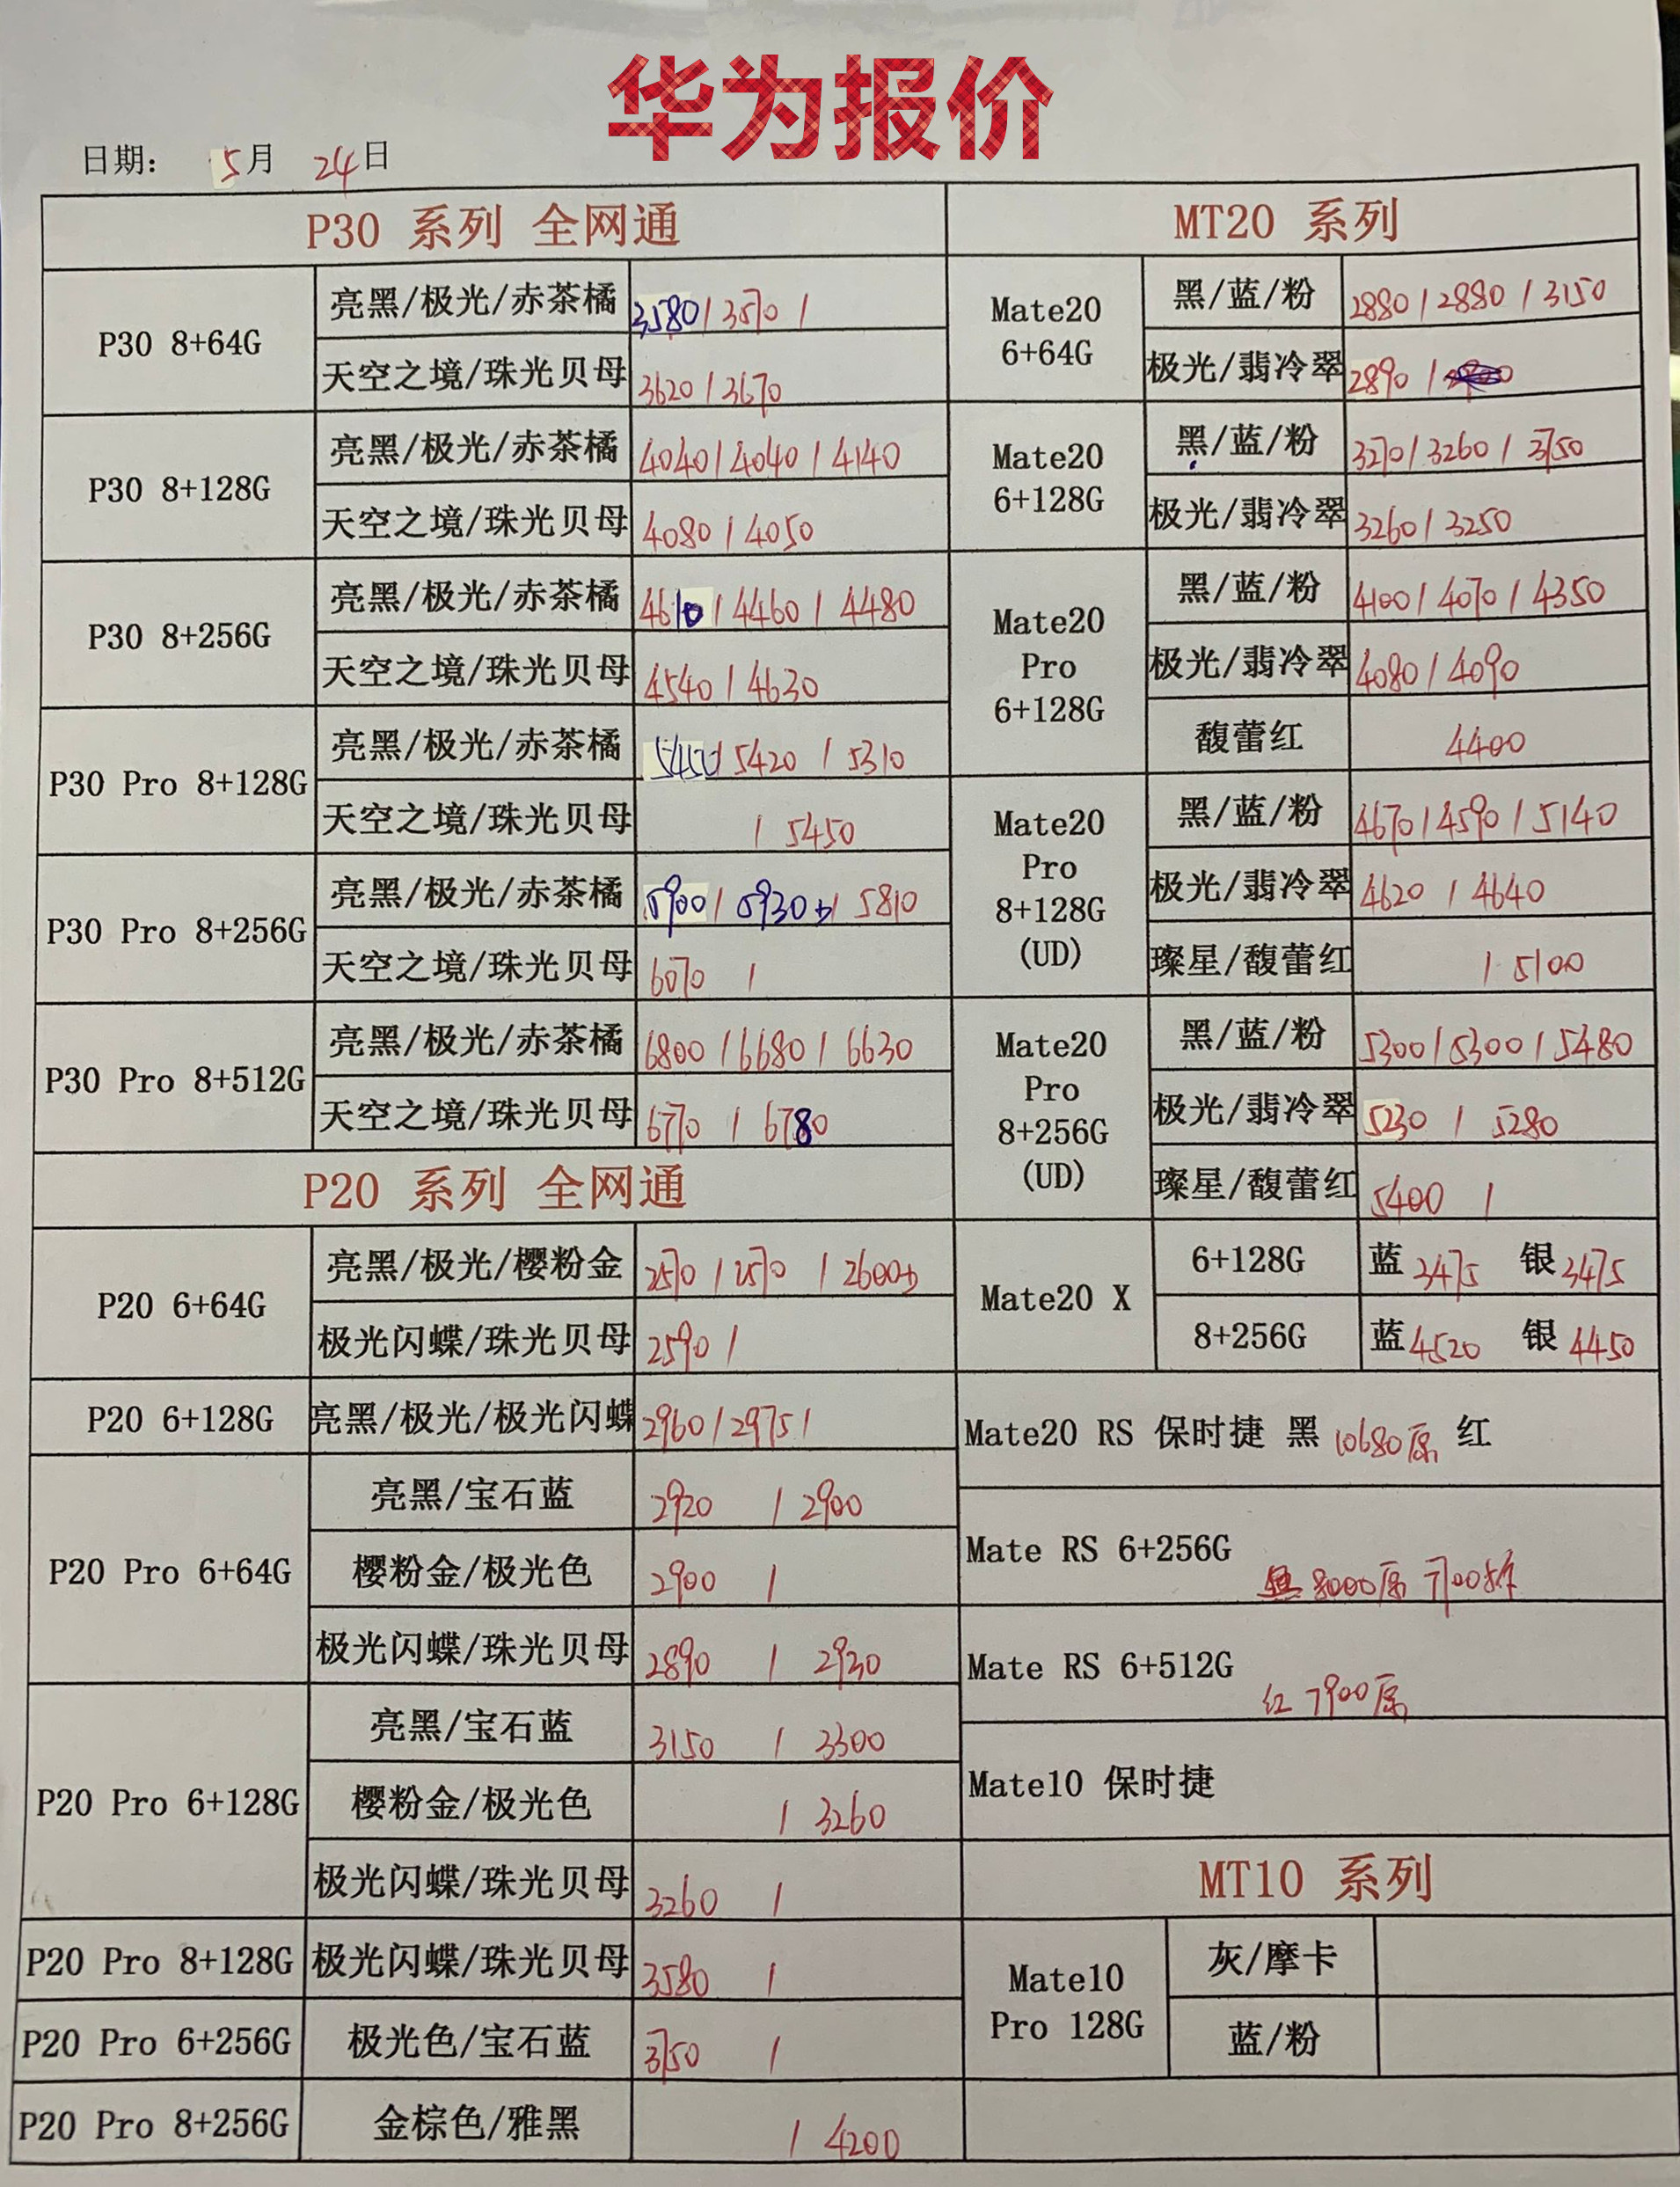 华为报价
日期: 5月 24日
P30 系列 全网通
P30 8+64G
亮黑/极光/赤茶橘 3580/3570/
天空之境/珠光贝母 3620/3670
P30 8+128G
亮黑/极光/赤茶橘 4040/4040/4140
天空之境/珠光贝母 4080/4050
P30 8+256G
亮黑/极光/赤茶橘 4610/4460/4480
天空之境/珠光贝母 4540/4630
P30 Pro 8+128G
亮黑/极光/赤茶橘 5450/5420/5310
天空之境/珠光贝母 /5450
P30 Pro 8+256G
亮黑/极光/赤茶橘 5900/5930/5810
天空之境/珠光贝母 6070/
P30 Pro 8+512G
亮黑/极光/赤茶橘 6800/6680/6630
天空之境/珠光贝母 6770/6780
P20 系列 全网通
P20 6+64G
亮黑/极光/樱粉金 2570/2570/2600
极光闪蝶/珠光贝母 2590/
P20 6+128G
亮黑/极光/极光闪蝶 2960/2975/
P20 Pro 6+64G
亮黑/宝石蓝 2920/2900
樱粉金/极光色 2900/
极光闪蝶/珠光贝母 2890/2930
P20 Pro 6+128G
亮黑/宝石蓝 3150/3300
樱粉金/极光色 /3260
极光闪蝶/珠光贝母 3260/
P20 Pro 8+128G
极光闪蝶/珠光贝母 3580/
P20 Pro 6+256G
极光色/宝石蓝 3750/
P20 Pro 8+256G
金棕色/雅黑 /4200
MT20 系列
Mate20
6+64G
黑/蓝/粉 2880/2880/3150
极光/翡冷翠 2890/
Mate20
6+128G
黑/蓝/粉 3270/3260/3750
极光/翡冷翠 3260/3250
Mate20
Pro
6+128G
黑/蓝/粉 4100/4070/4350
极光/翡冷翠 4080/4090
馥蕾红 4400
Mate20
Pro
8+128G
(UD)
黑/蓝/粉 4670/4590/5140
极光/翡冷翠 4620/4640
璨星/馥蕾红 /5100
Mate20
Pro
8+256G
(UD)
黑/蓝/粉 5300/5300/5480
极光/翡冷翠 5230/5280
璨星/馥蕾红 5400/
Mate20 X
6+128G 蓝3475 银3475
8+256G 蓝4520 银4450
Mate20 RS 保时捷 黑 10680原 红
Mate RS 6+256G
8000原 7700
Mate RS 6+512G
红 7900原
Mate10 保时捷
MT10 系列
Mate10
Pro 128G
灰/摩卡
蓝/粉